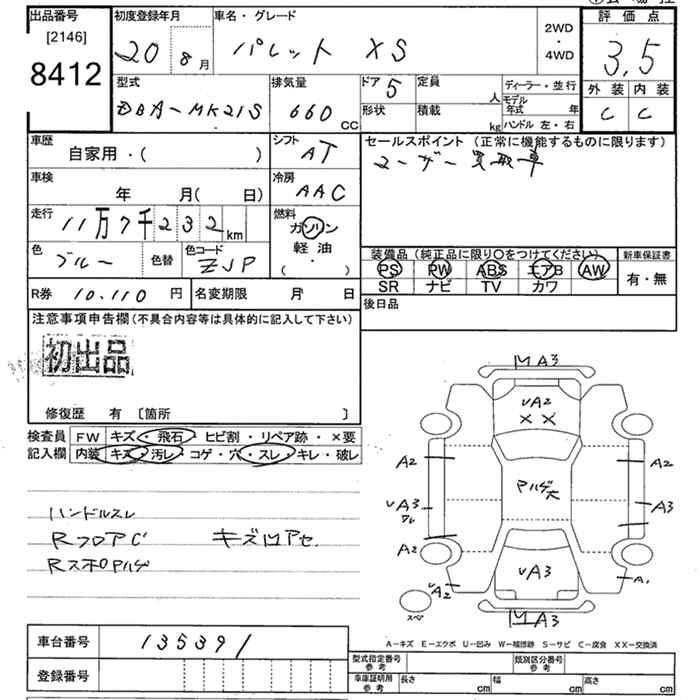 出品番号 初度登録年月 車名・グレード 評価点
[2146] 20 8月 パレット XS 2WD・4WD 3.5
8412
型式 排気量 ドア 5 定員 人 ディーラー・並行 外装 内装
DBA-MK21S 660 CC 形状 積載 kg モデル年式 年 C C
ハンドル 左・右
車歴 自家用・( ) シフト AT セールスポイント (正常に機能するものに限ります)
ユーザー買取車
車検 年 月( 日) 冷房 AAC
走行 11万7千232km 燃料 ガソリン 軽油 ( ・ )
色 ブルー 色替 色コード ZJP 装備品 (純正品に限り○をつけてください) 新車保証書
PS PW ABS エアB AW 有・無
SR ナビ TV カワ
R券 10.110 円 名変期限 月 日 後日品
注意事項申告欄(不具合内容等は具体的に記入して下さい)
初出品
修復歴 有 [箇所 ]
検査員 FW キズ・飛石・ヒビ割・リペア跡・×要
記入欄 内装 キズ・汚レ・コゲ・穴・スレ・キレ・破レ
ハンドルスレ
RフロアC キズ凹アセ
RスポロアルゲMA3
UA2
XX
A2 A2
アルゲ大
UA3 A3
ワレ
A2
UA3
UA2 A1
スペア
MA3
A-キズ E-エクボ U-凹み W-補修跡 S-サビ C-腐食 XX-交換済
車台番号 135391
型式指定番号 参考 類別区分番号 参考
登録番号 車庫証明用 参考 長さ cm 幅 cm 高さ cm